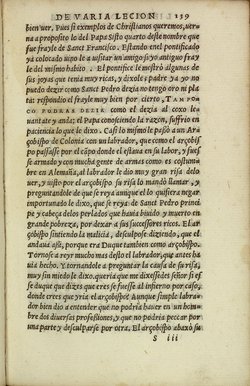 DE VARIA LECION 139
bien uer. Pues si exemplos de Christianos queremos, ver-
na a proposito lo del Papa Sisto quarto deste nombre que
fue frayle de Sanct Francisco. Estando en el pontificado
ya colocado uino le a uisitar un amigo suyo antiguo fray
le del mismo habito. El Pontifice le mostro algunas de
sus joyas que tenia muy ricas, y dixole: padre ya yo no
puedo dezir como Sanct Pedro dezia no tengo oro ni pla
ta: respondio el frayle muy bien cierto, TAN PO
CO PODRAS DEZIR como el dezia al coxo le-
uantate y anda: el Papa conosciendo la razon, suffrio en
paciencia lo que le dixo. Casi lo mismo le passo a un Ar
çobispo de Colonia con un labrador, que como el arçobis
po passasse por el cãpo donde el estaua en su labor, y fues
se armado y con mucha gente de armas como es costum-
bre en Alemaña, al labrador le dio muy gran risa delo
uer, y uisto por el arçobispo la risa lo mandò llamar, y
preguntandole de que se reya amigo el lo quiero que negar
mas dixole señor, que se reya de Sanct Pedro princi
pe y cabeça delos perlados que hauia biuido y muerto en
grande pobreza, por dexar a sus successores rico. El ar-
çobispo sintiendo la malicia, desculpose diziendo, que el
andaua assi, porque era Duque tambien como arçobispo.
Tornose a reyr mucho mas desto el labrador, que antes ha
uia hecho. Y tornandole a preguntar la causa de su risa,
muy sin miedo le dixo. querria que me dixessedes señor si el
de duque que dizes que eres se fuesse al infierno por caso,
donde que creys yria el arçobispo? Aunque simple labra-
dor bien dio a entender que no podria hauer en un hom-
bre dos diuersas professiones, y que no podria peccar por
una parte y desculparse por otra. El arçobispo abaxò su
S iii